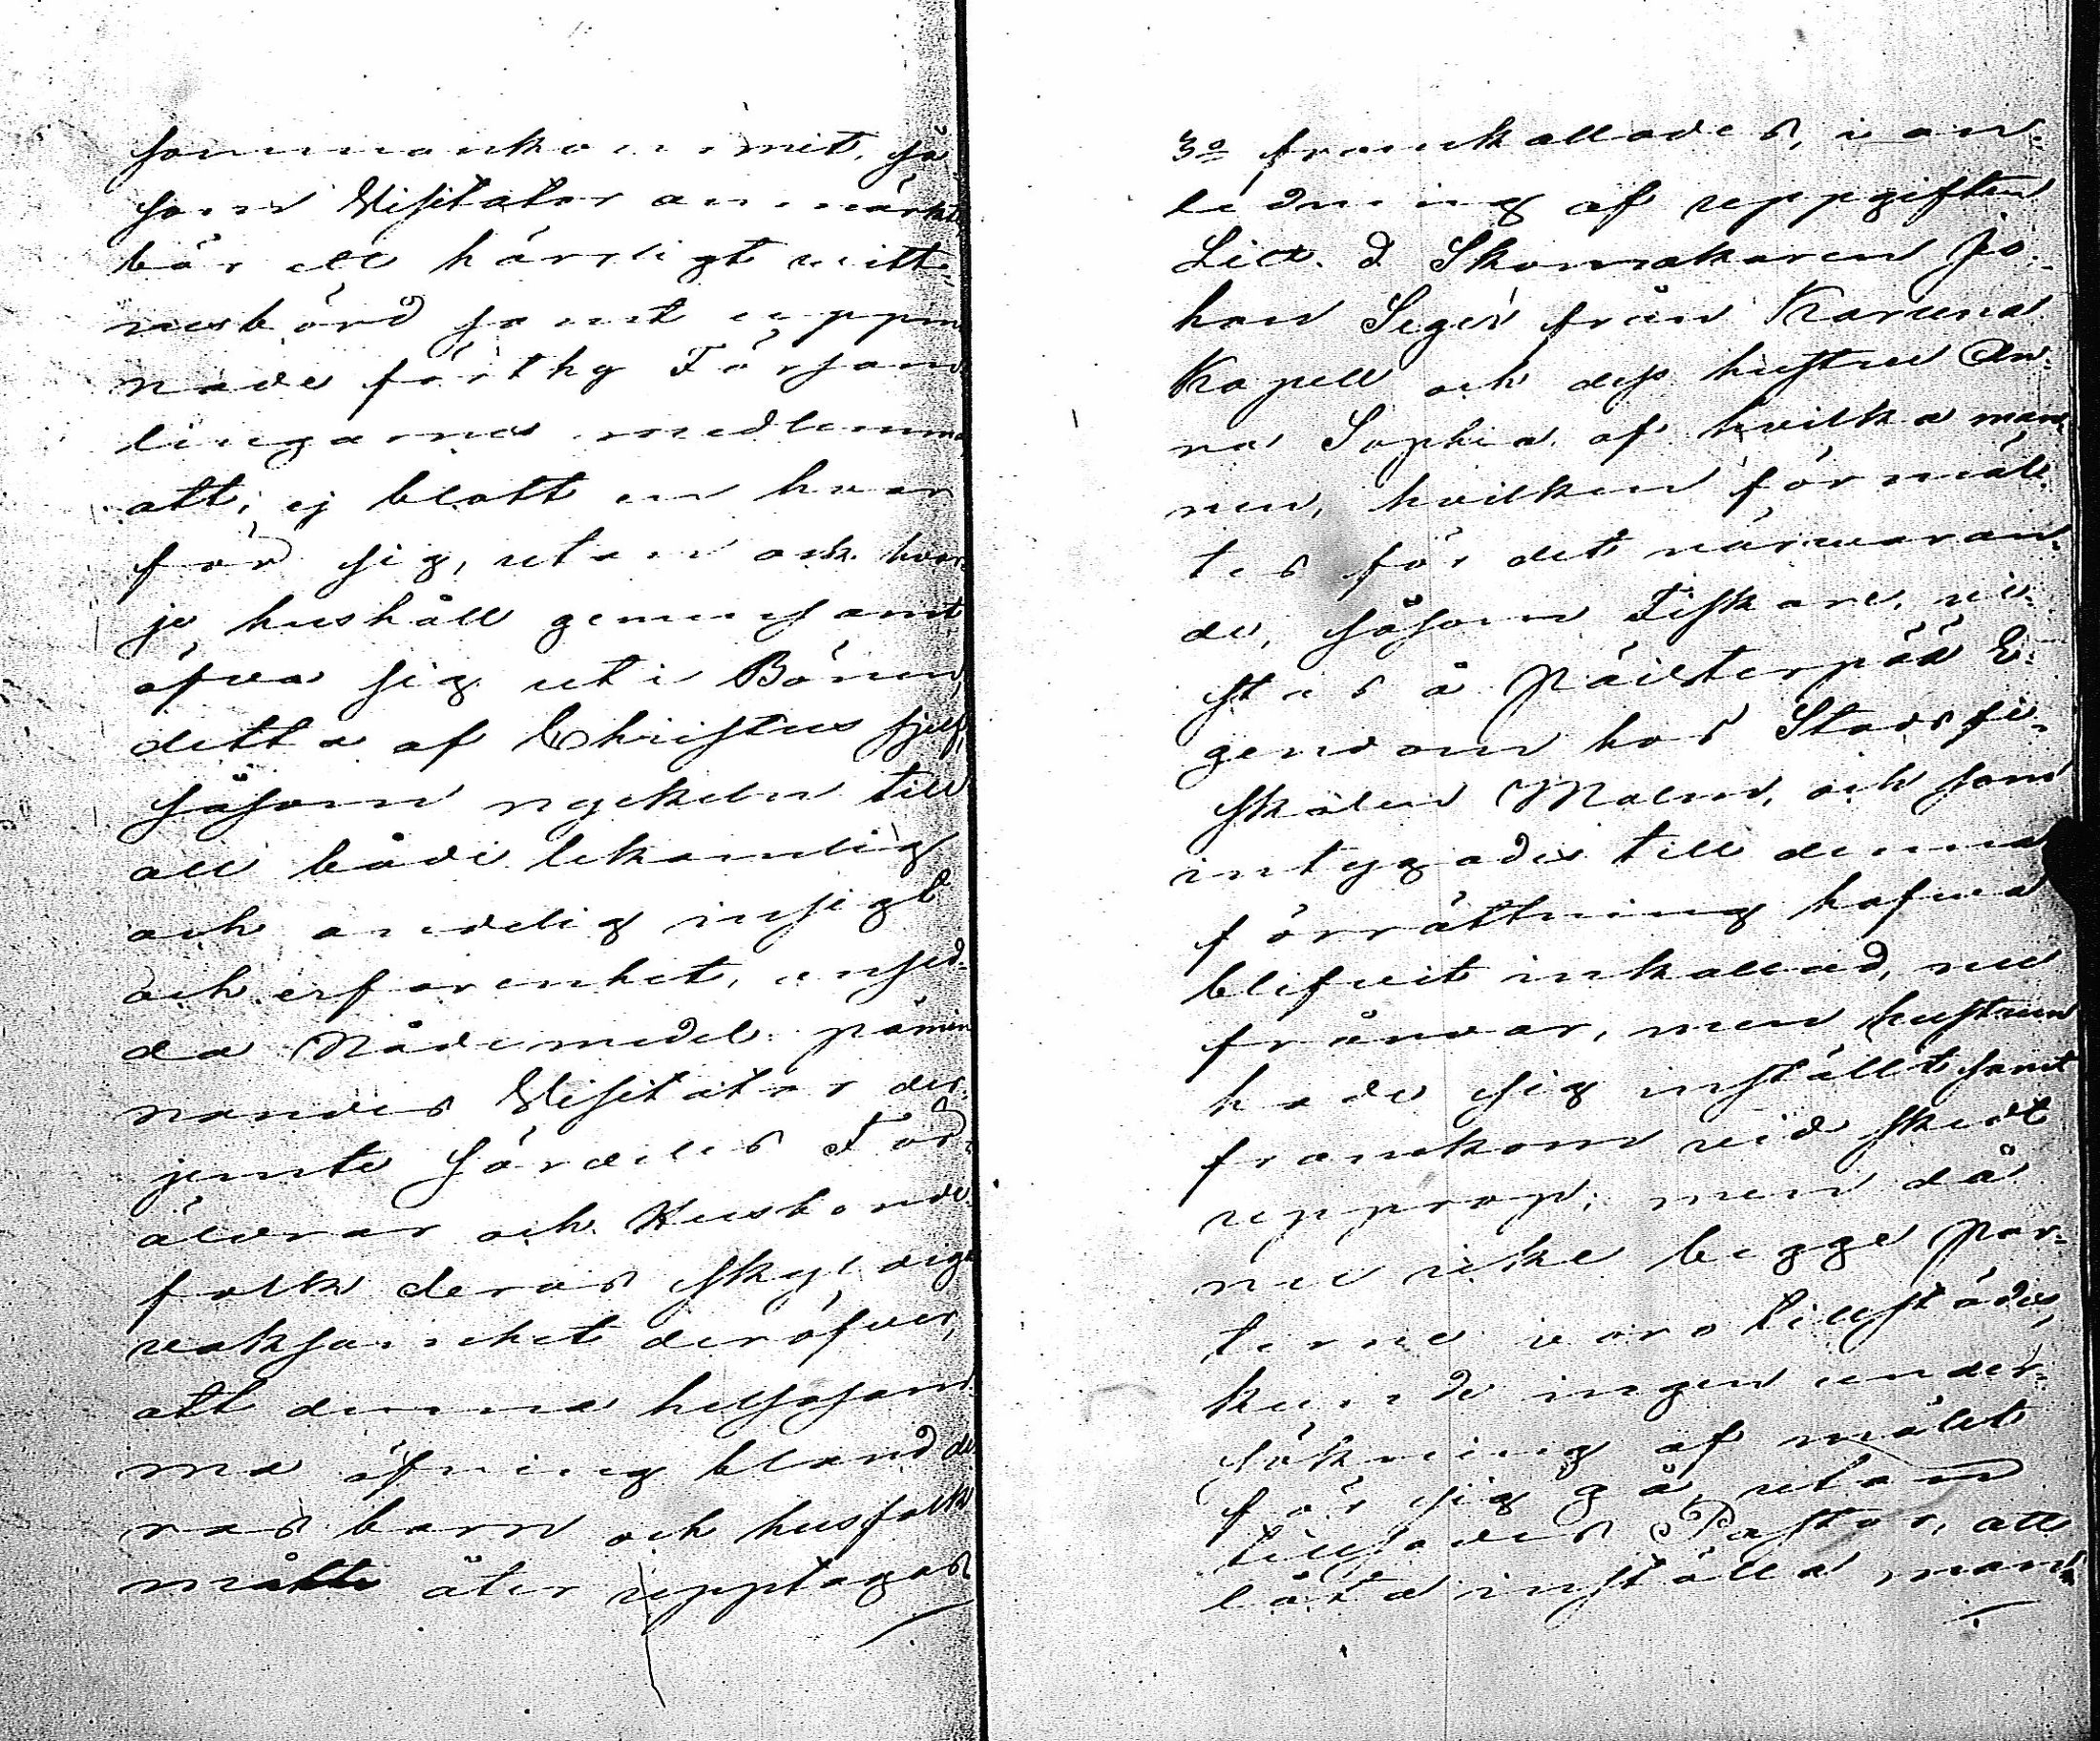 sammankommit, så
som Visitator anmärkte,
bär ett härrligt vitt-
nesbörd samt uppm
nade förthy Försam
lingarnes medlemma
att, ej blott en hvar
för sig, utan ock hvar
je hushåll gemensamt
öfva sig uti Bönen,
detta af Christus sjelf,
såsom nyckeln till
all både lekamlig
och andelig insigt
och erfarenhet, ansed-
da Nådemedel påmin
nandes Visitator der-
jemte särdeles För-
äldrar och Husbonde-
folk deras skyldiga
vaksamhet deröfver,
att denna helsosam
ma öfning bland de
ras barn och husfolk
måtte åter upptagas
3o framkallades, i an-
ledning af uppgiften
Litt. D Skomakaren Jo-
han Seger från Karuna
Kapell och dess hustru An-
na Sophia af hvilka man
nen, hvilken förmäl-
tes för det närvaran-
de, såsom Fiskare, vi-
stas å Päisterpää E-
gendom hos Stadsfi-
skalen Malm, och som
intygades till denna
förrättning hafva
blifvit inkallad, nu
frånvar, men hustrun
hade sig inställt samt
framkom vid skedt
upprop; men då
nu icke begge Par-
terne voro tillstädes,
kunde ingen under-
sökning af målet
för sig gå, utan
tillsades Pastor, att
låta inställa man